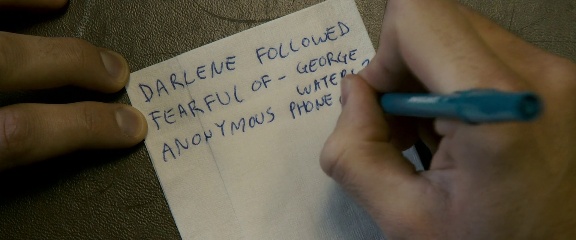 DARLENE FOLLOWED
FEARFUL OF - GEORGE
ANONYMOUS PHONE